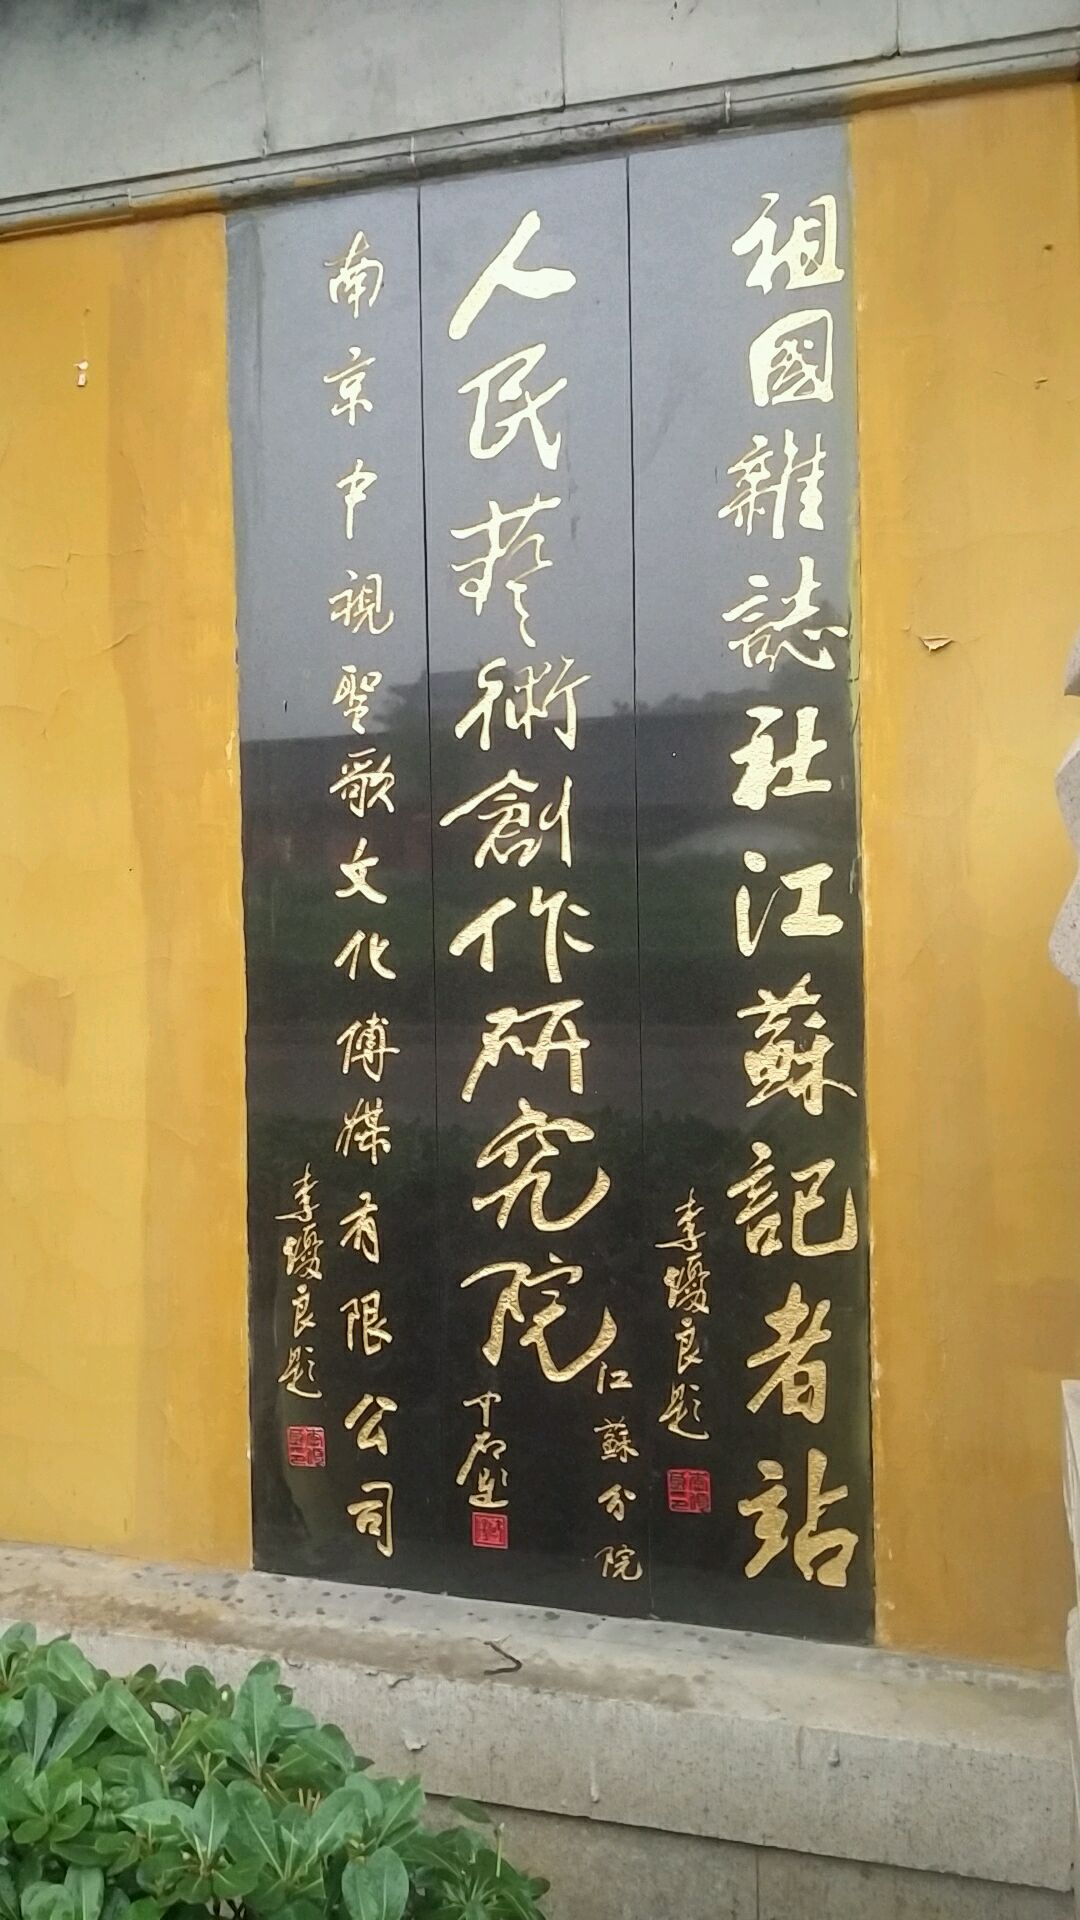 祖國雜誌社江蘇記者站
李優良題
人民藝術創作研究院
江蘇分院
南京中視聖歌文化傳媒有限公司
李優良題